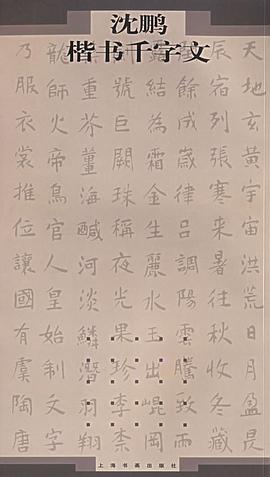 沈鹏
楷书千字文
天地玄黃宇宙洪荒日月盈昃
辰宿列張寒來暑往秋收冬藏
餘成歲律呂調陽雲騰致雨
結為霜金生麗水玉出崐岡
號巨闕珠稱夜光果珍李柰
重芥薑海鹹河淡鱗潛羽翔
龍師火帝鳥官人皇始制文字
乃服衣裳推位讓國有虞陶唐
上海书画出版社